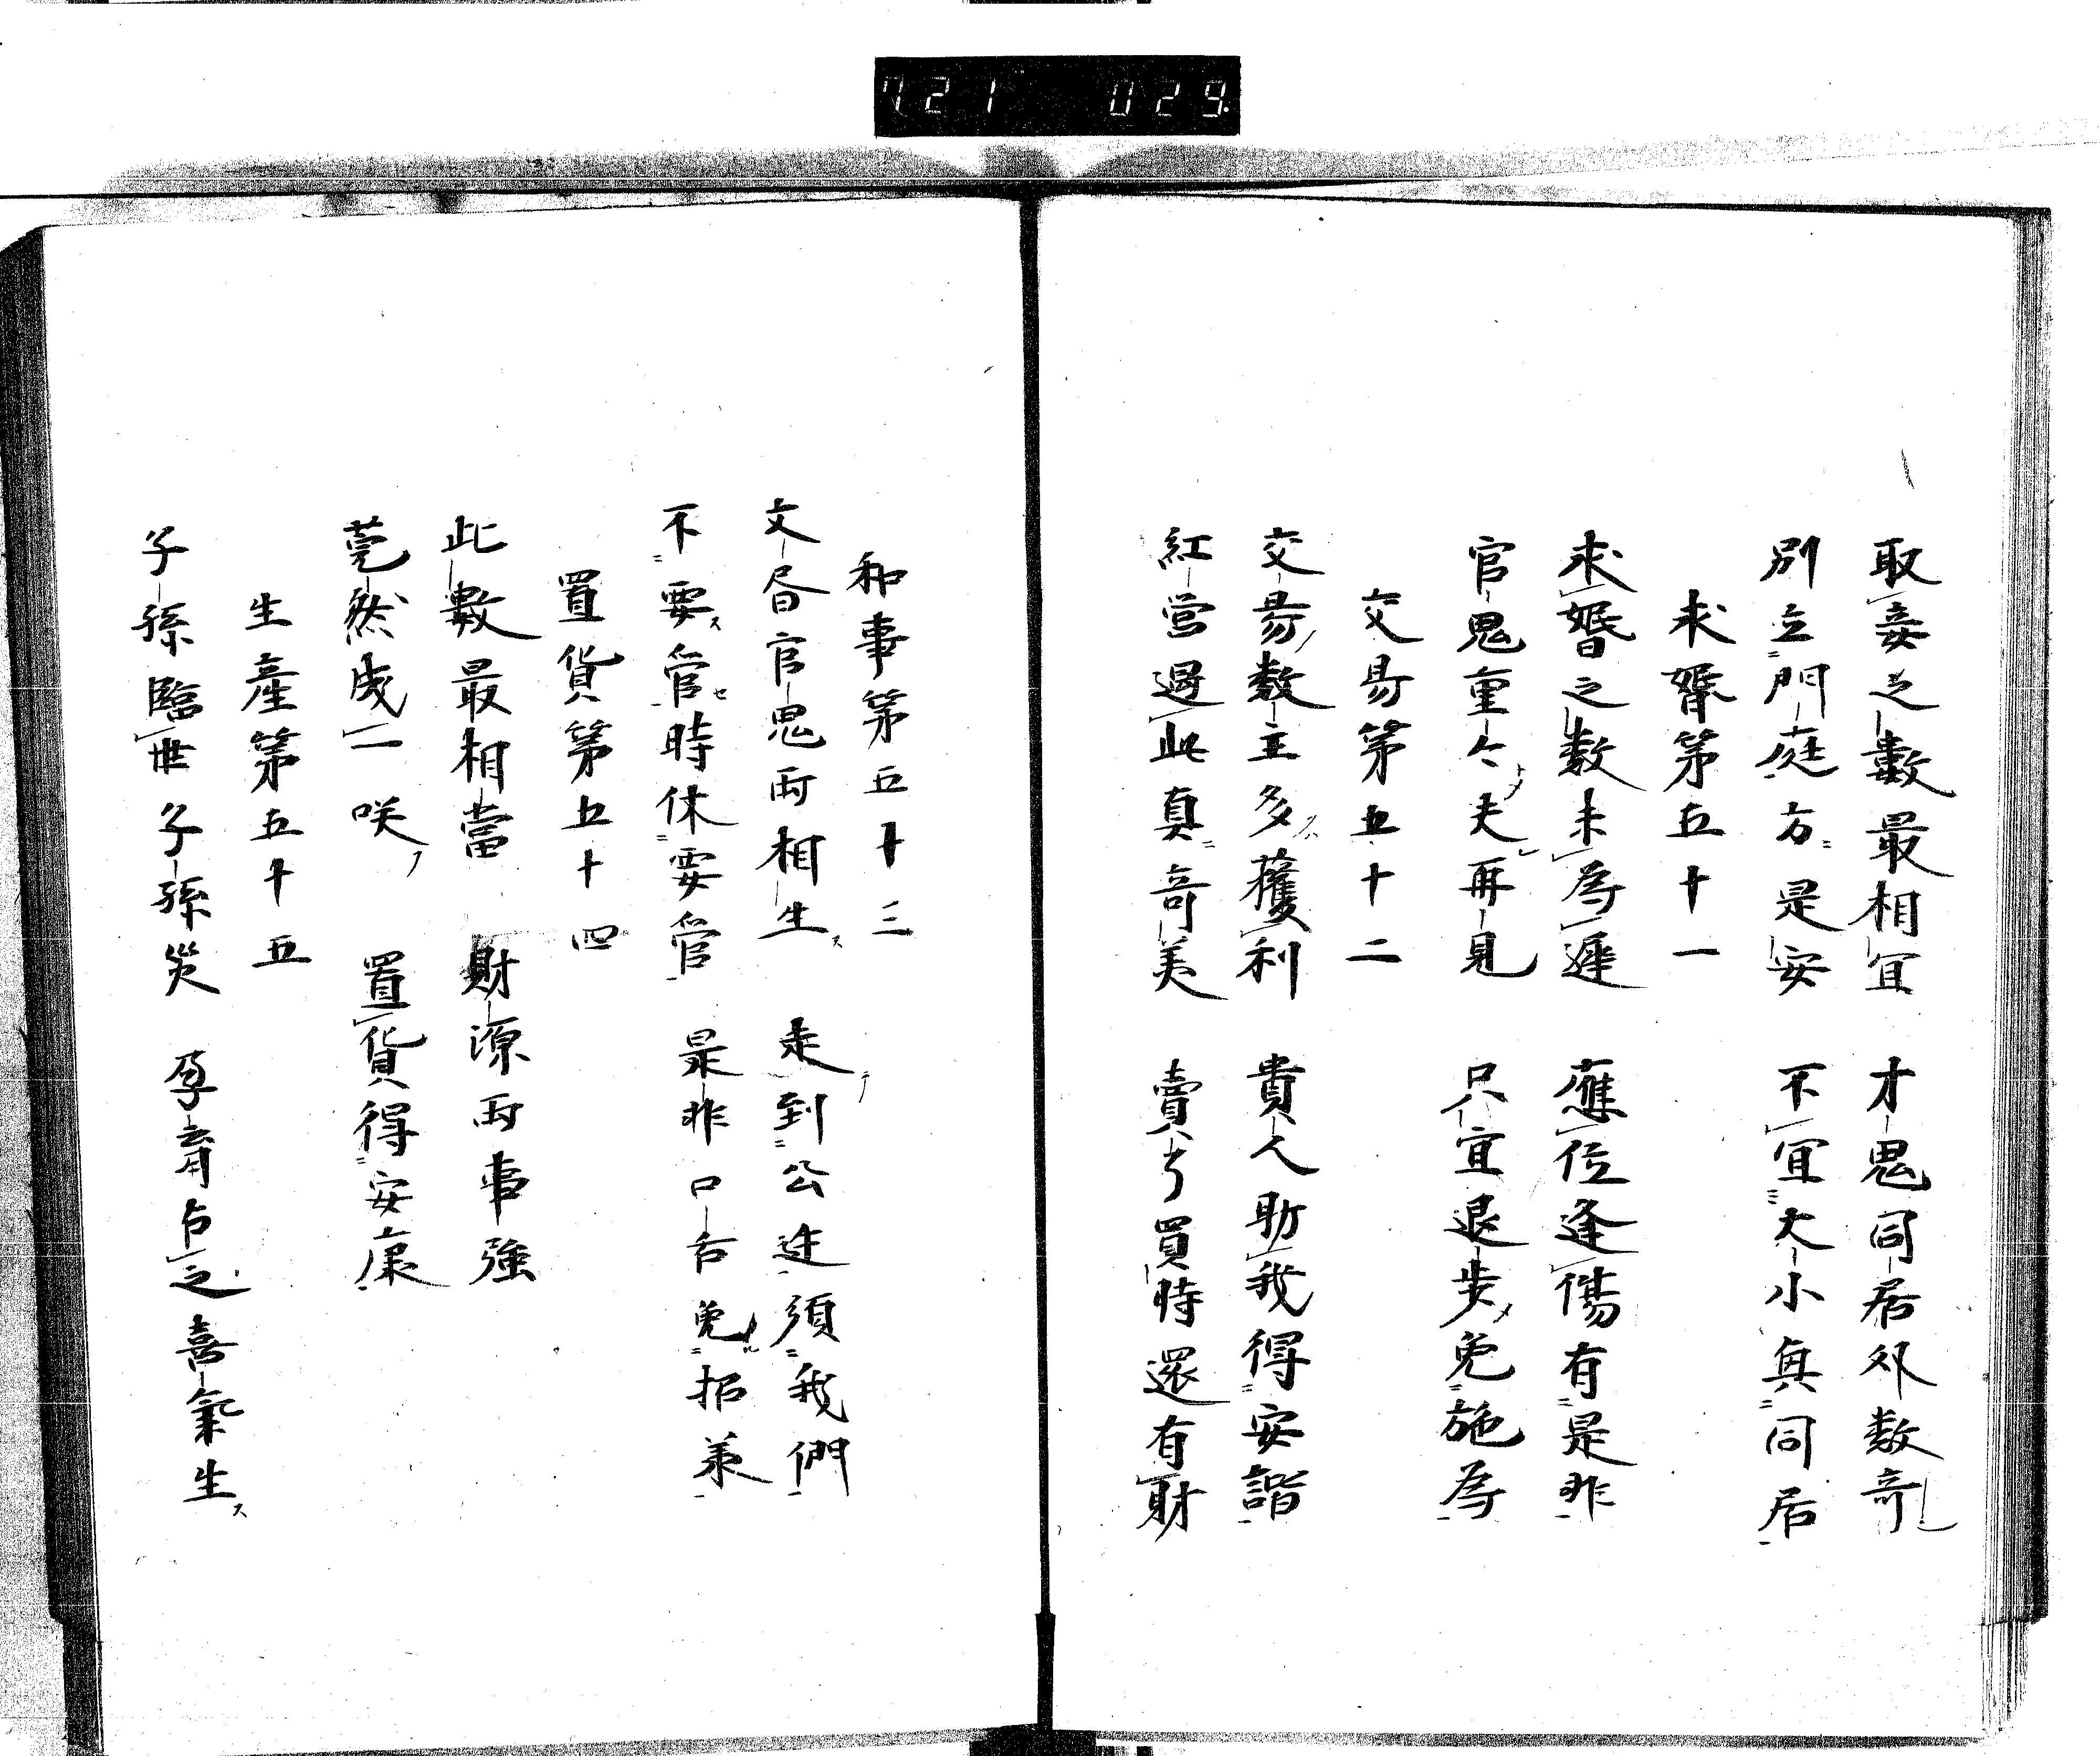 721 029
取妾之數最相宜 才鬼同居外数奇
別立門庭方是安 不宜大小與同居
求婚第五十一
求婚之数未為遲 應位逢傷有是非
官鬼重々夫再見 只宜退步免施為
交易第五十二
交易数主多獲利 貴人助我得安諧
紅営過此真奇美 賣了買時還有財
和事第五十三
文昏官鬼両相生 走到公迯須我們
不要管時休要管 是非口舌免招来
置貨第五十四
此數最相當 財源両事強
莞然成一咲 置貨得安康
生產第五十五
子孫臨世子孫災 孕育占之喜氣生